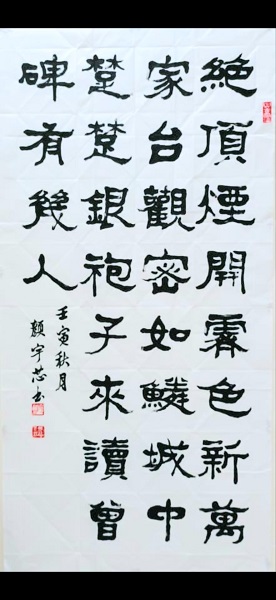 絕頂煙開霽色新萬
家台觀密如鱗城中
楚楚銀袍子來讀曾
碑有幾人
壬寅秋月
顏宇芯书